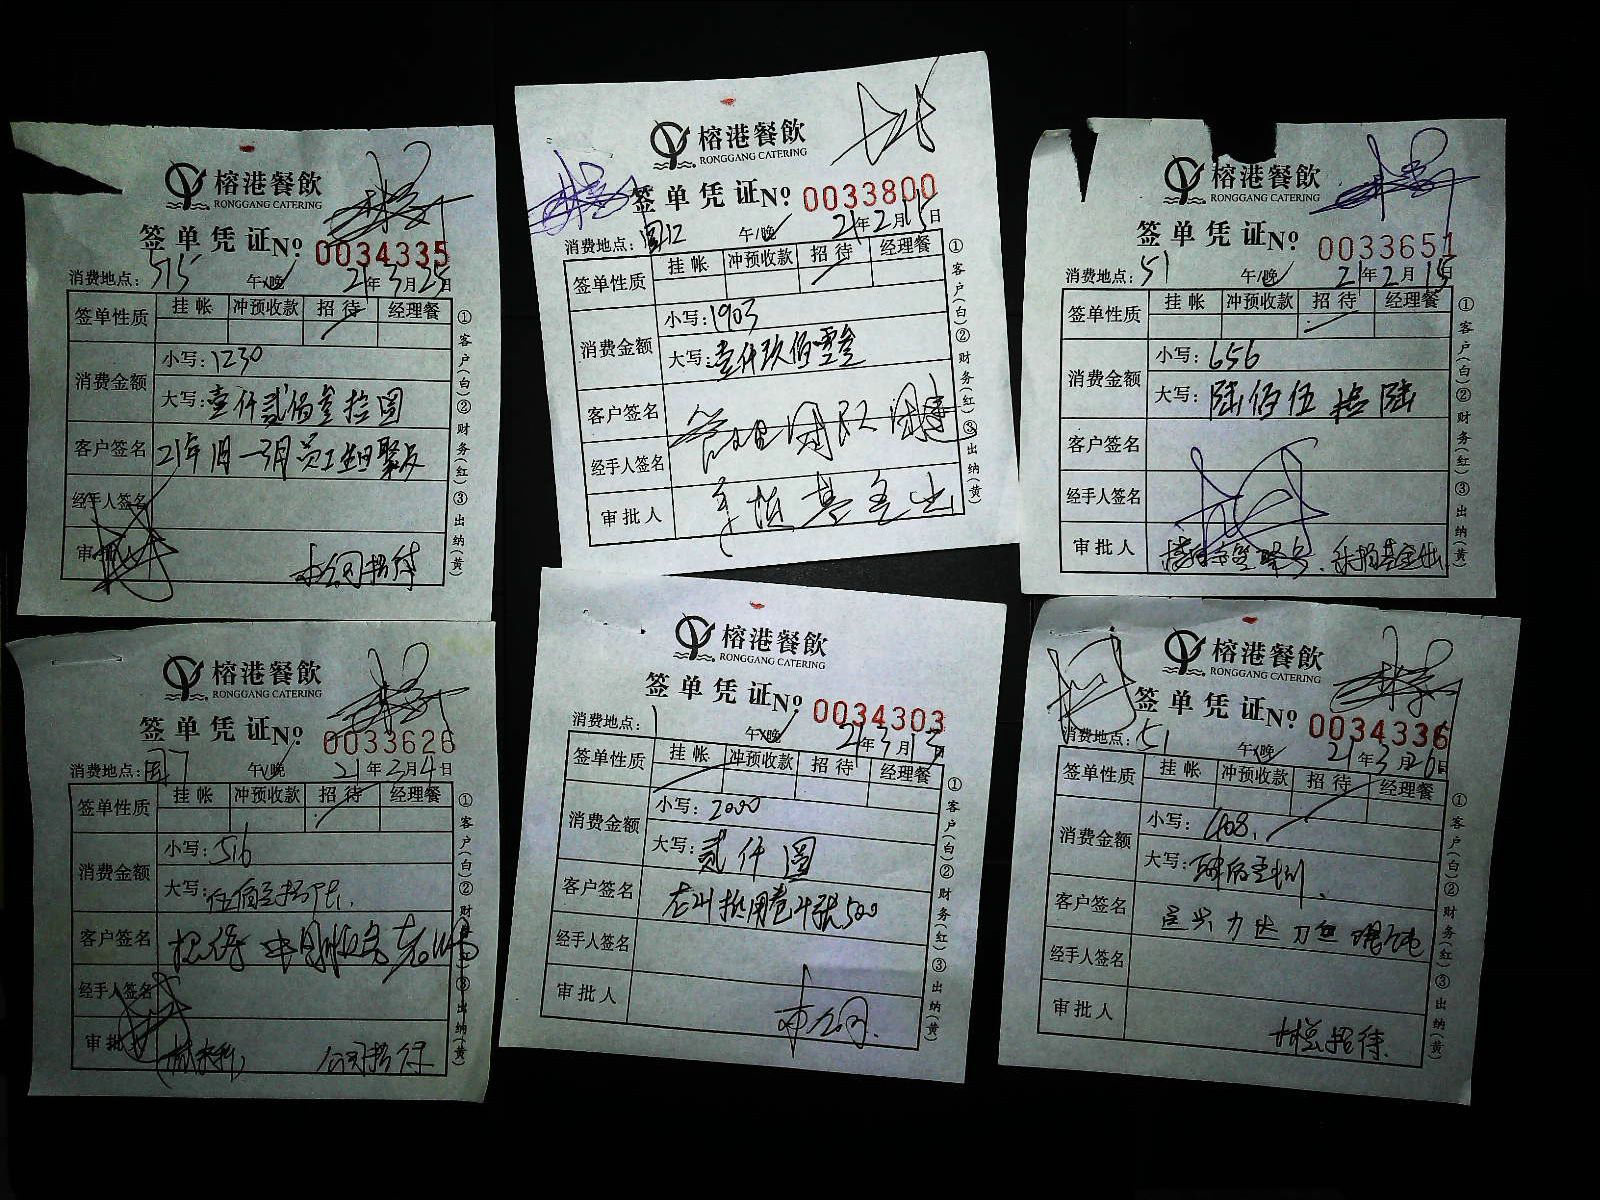 榕港餐飲
RONGGANG CATERING
签单凭证 Nº 0034335
消费地点: 515 午/晚 21年3月25日
签单性质 挂帐 冲预收款 招待 经理餐
消费金额 小写: 1230
大写: 壹仟贰佰叁拾圆
客户签名 21年1月-3月员工生日聚友
经手人签名
审批人
本公司招待
①客户(白)②财务(红)③出纳(黄)
榕港餐飲
RONGGANG CATERING
签单凭证 Nº 0033800
消费地点: 午/晚 21年2月15日
签单性质 挂帐 冲预收款 招待 经理餐
消费金额 小写: 1903
大写: 壹仟玖佰零叁
客户签名 管理团队团建
经手人签名
审批人 基金出
①客户(白)②财务(红)③出纳(黄)
榕港餐飲
RONGGANG CATERING
签单凭证 Nº 0033651
消费地点: 51 午/晚 21年2月15日
签单性质 挂帐 冲预收款 招待 经理餐
消费金额 小写: 656
大写: 陆佰伍拾陆
客户签名
经手人签名
审批人 基金出
①客户(白)②财务(红)③出纳(黄)
榕港餐飲
RONGGANG CATERING
签单凭证 Nº 0033626
消费地点: 午/晚 21年3月4日
签单性质 挂帐 冲预收款 招待 经理餐
消费金额 小写: 516
大写: 伍佰壹拾陆
客户签名 招待
经手人签名
审批人
公司招待
①客户(白)②财务(红)③出纳(黄)
榕港餐飲
RONGGANG CATERING
签单凭证 Nº 0034303
消费地点: 1 午/晚 21年3月13日
签单性质 挂帐 冲预收款 招待 经理餐
消费金额 小写: 2000
大写: 贰仟圆
客户签名 用卷4张500
经手人签名
审批人 本公司
①客户(白)②财务(红)③出纳(黄)
榕港餐飲
RONGGANG CATERING
签单凭证 Nº 0034336
消费地点: 51 午/晚 21年3月26日
签单性质 挂帐 冲预收款 招待 经理餐
消费金额 小写: 408
大写:
客户签名
经手人签名
审批人 林总招待
①客户(白)②财务(红)③出纳(黄)